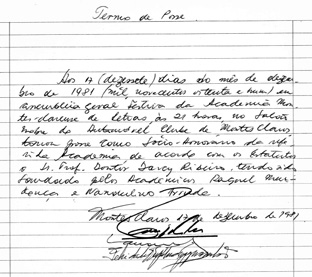 Termo de Posse
Aos 17 (dezessete) dias do mês de dezem-
bro de 1981 (mil novecentos oitenta e hum) em
assembleia geral festiva da Academia Mon-
tes-clarense de letras, às 21 horas, no salão
nobre do Automóvel Clube de Montes Claros,
tomou posse como sócio-honorário da refe-
rida Academia de acordo com os Estatutos
o Sr. Prof. Doutor Darcy Ribeiro, tendo sido
saudado pelos Acadêmicos Raquel Men-
donça e Wanderlino Arruda.
Montes Claros 17 de dezembro de 1981